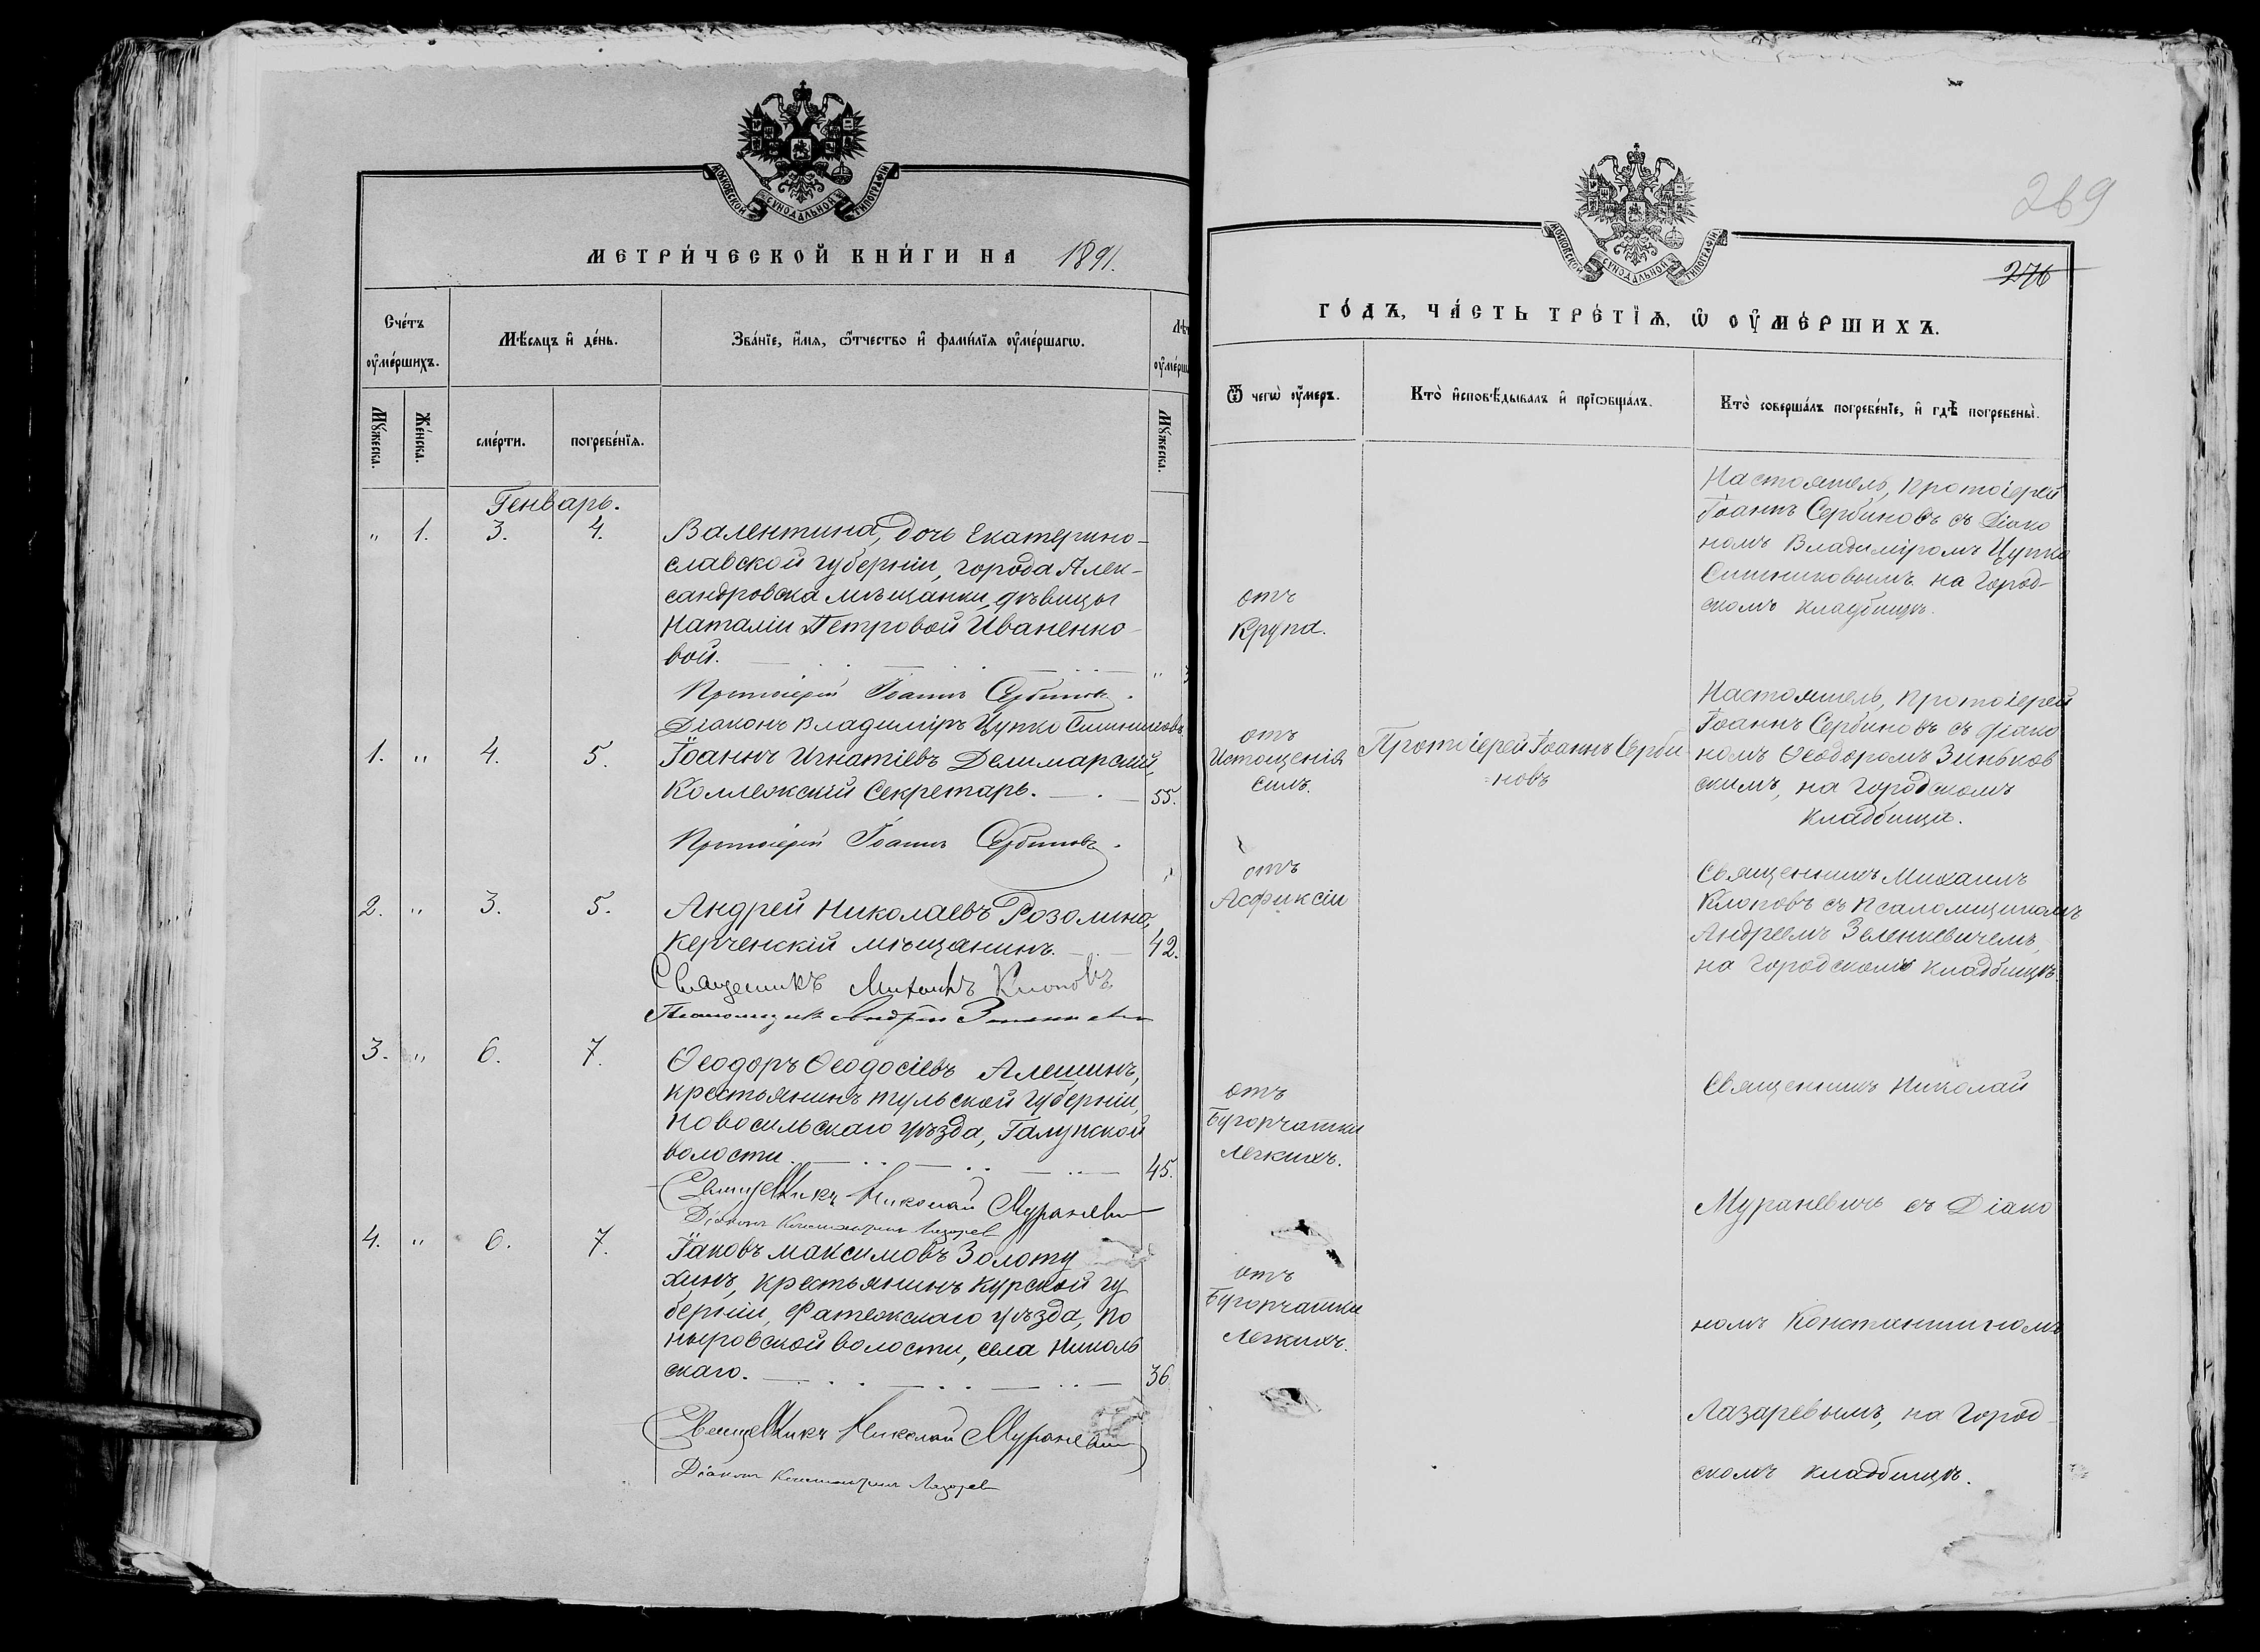 МОСКОВСКОЙ СѴНОДАЛЬНОЙ ТИПОГРАФІИ
МЕТРИ́ЧЕСКОЙ КНИ́ГИ НА 1891.
Сче́тъ ᲂу҆ме́ршихъ.
Мѣ́сяцъ и҆ де́нь.
Зва́нїе, и҆́мя, ѻ҆́тчество и҆ фами́лїя ᲂу҆ме́ршагѡ.
Мꙋ́жеска.
Же́нска.
сме́рти.
погребе́нїѧ.
Мꙋ́жеска.
Генварь.
" 1. 3. 4. Валентина, дочь Екатерино-
славской губерніи, города Алек-
сандровска мѣщанки, дѣвицы
Наталіи Петровой Иваненко-
вой.
Протоіерей Іоаннъ Сербиновъ.
Діаконъ Владиміръ Цупко Ситниковъ
1. " 4. 5. Іоаннъ Игнатіевъ Делимарскій,
Коллежскій Секретарь. 55.
Протоіерей Іоаннъ Сербиновъ.
2. " 3. 5. Андрей Николаевъ Розолино,
Керченскій мѣщанинъ. 42.
Священникъ Михаилъ Клоповъ
Псаломщикъ Андрей Зеленкевич
3. " 6. 7. Ѳеодоръ Ѳеодосіевъ Алешинъ,
крестьянинъ Тульской губерніи,
Новосильскаго уѣзда, Галунской
волости. 45.
Священникъ Николай Мураневич
Діаконъ Константинъ Лазарев
4. " 6. 7. Іаковъ Максимовъ Золоту
хинъ, крестьянинъ Курской гу
берніи, Фатежскаго уѣзда, По
ныровской волости, села Николь
скаго. 36
Священникъ Николай Мураневич
Діаконъ Константинъ Лазарев
269
МОСКОВСКОЙ СѴНОДАЛЬНОЙ ТИПОГРАФІИ
276
ГО́ДЪ, ЧА́СТЬ ТРЕ́ТЇѦ, Ѡ҆ ОУ҆МЕ́РШИХЪ.
Ѿ чегѡ̀ ᲂу҆́меръ.
Кто̀ и҆сповѣ́дывалъ и҆ прїѡбща́лъ.
Кто̀ соверша́лъ погребе́нїе, и҆ гдѣ̀ погребены̀.
отъ
Крупа.
Настоятель, Протоіерей
Іоаннъ Сербиновъ съ Діако
номъ Владиміромъ Цупко
Ситниковымъ на Город-
скомъ кладбищѣ.
отъ
Истощенія
силъ.
Протоіерей Іоаннъ Серби
новъ
Настоятель, Протоіерей
Іоаннъ Сербиновъ съ діако
номъ Ѳеодоромъ Зиньков
скимъ, на Городскомъ
кладбищѣ.
отъ
Асфиксіи
Священникъ Михаилъ
Клоповъ съ Псаломщикомъ
Андреемъ Зеленкевичемъ,
на Городскомъ кладбищѣ
отъ
Бугорчатки
Легкихъ.
Священникъ Николай
Мураневичъ съ Діако
отъ
Бугорчатки
Легкихъ.
номъ Константиномъ
Лазаревымъ, на Город
скомъ кладбищѣ.